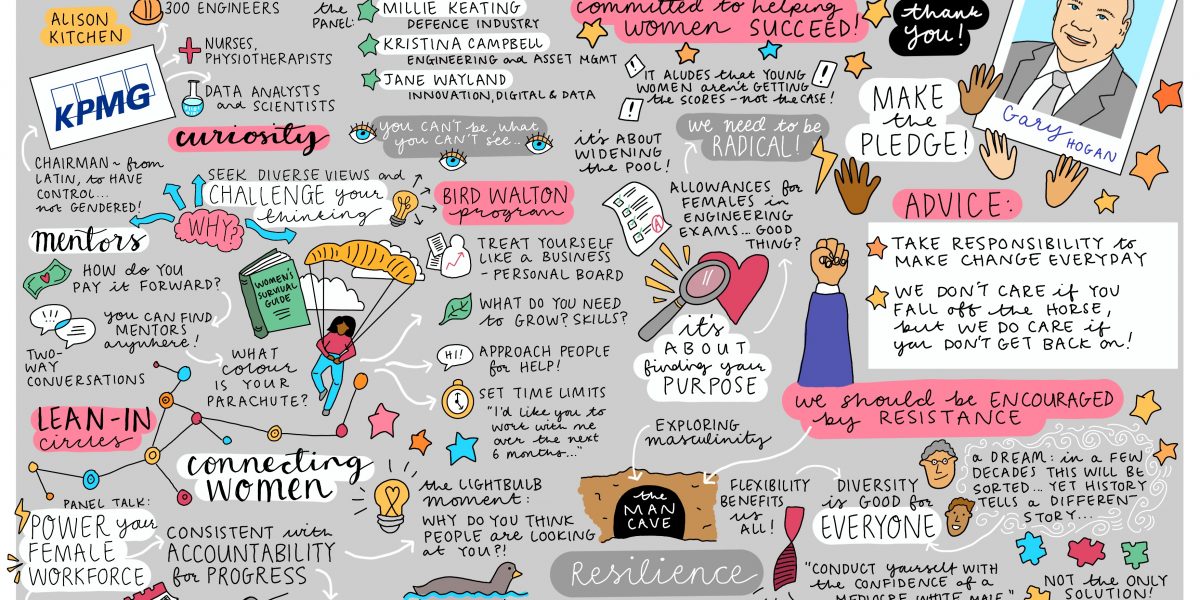 ALISON
KITCHEN
300 ENGINEERS
NURSES,
PHYSIOTHERAPISTS
DATA ANALYSTS
and SCIENTISTS
KPMG
CHAIRMAN ~ from
LATIN, to HAVE
CONTROL...
not GENDERED!
the
PANEL:
MILLIE KEATING
DEFENCE INDUSTRY
KRISTINA CAMPBELL
ENGINEERING and ASSET MGMT
JANE WAYLAND
INNOVATION, DIGITAL & DATA
curiosity
you CAN'T be, what
you CAN'T see...
SEEK DIVERSE VIEWS and
CHALLENGE your
thinking
WHY?
BIRD WALTON
program
mentors
HOW do you
PAY it FORWARD?
you CAN FIND
MENTORS
anywhere!
TWO-
WAY
CONVERSATIONS
WOMEN'S
SURVIVAL
GUIDE
WHAT
COLOUR
IS YOUR
PARACHUTE?
TREAT YOURSELF
LIKE a BUSINESS
- PERSONAL BOARD
WHAT DO YOU NEED
to GROW? SKILLS?
HI!
APPROACH PEOPLE
for HELP!
SET TIME LIMITS
"I'd like you to
work with me
over the next
6 months..."
LEAN-IN
circles
connecting
WOMEN
PANEL TALK:
POWER your
FEMALE
WORKFORCE
CONSISTENT with
ACCOUNTABILITY
for PROGRESS
the LIGHTBULB
MOMENT:
WHY DO YOU THINK
PEOPLE are LOOKING
AT YOU?!
committed to helping
women SUCCEED!
IT ALUDES that YOUNG
WOMEN aren't GETTING
the SCORES - not the CASE!
it's ABOUT
WIDENING
the POOL!
we need to be
RADICAL!
ALLOWANCES for
FEMALES in
ENGINEERING
EXAMS... GOOD
THING?
A
it's
ABOUT
finding your
PURPOSE
EXPLORING
masculinity
the
MAN
CAVE
FLEXIBILITY
BENEFITS
us
ALL!
Resilience
thank
you!
MAKE
the
PLEDGE!
Gary
HOGAN
ADVICE:
TAKE RESPONSIBILITY to
MAKE CHANGE EVERYDAY
WE DON'T CARE if YOU
FALL off the HORSE,
but WE DO CARE if
you DON'T GET BACK on!
we should be ENCOURAGED
by RESISTANCE
DIVERSITY
is GOOD for
EVERYONE
a DREAM: in a FEW
DECADES THIS WILL BE
SORTED... YET HISTORY
TELLS a DIFFERENT
STORY...
"CONDUCT yourself WITH
the CONFIDENCE of a
MEDIOCRE WHITE MALE"
NOT the ONLY
SOLUTION!